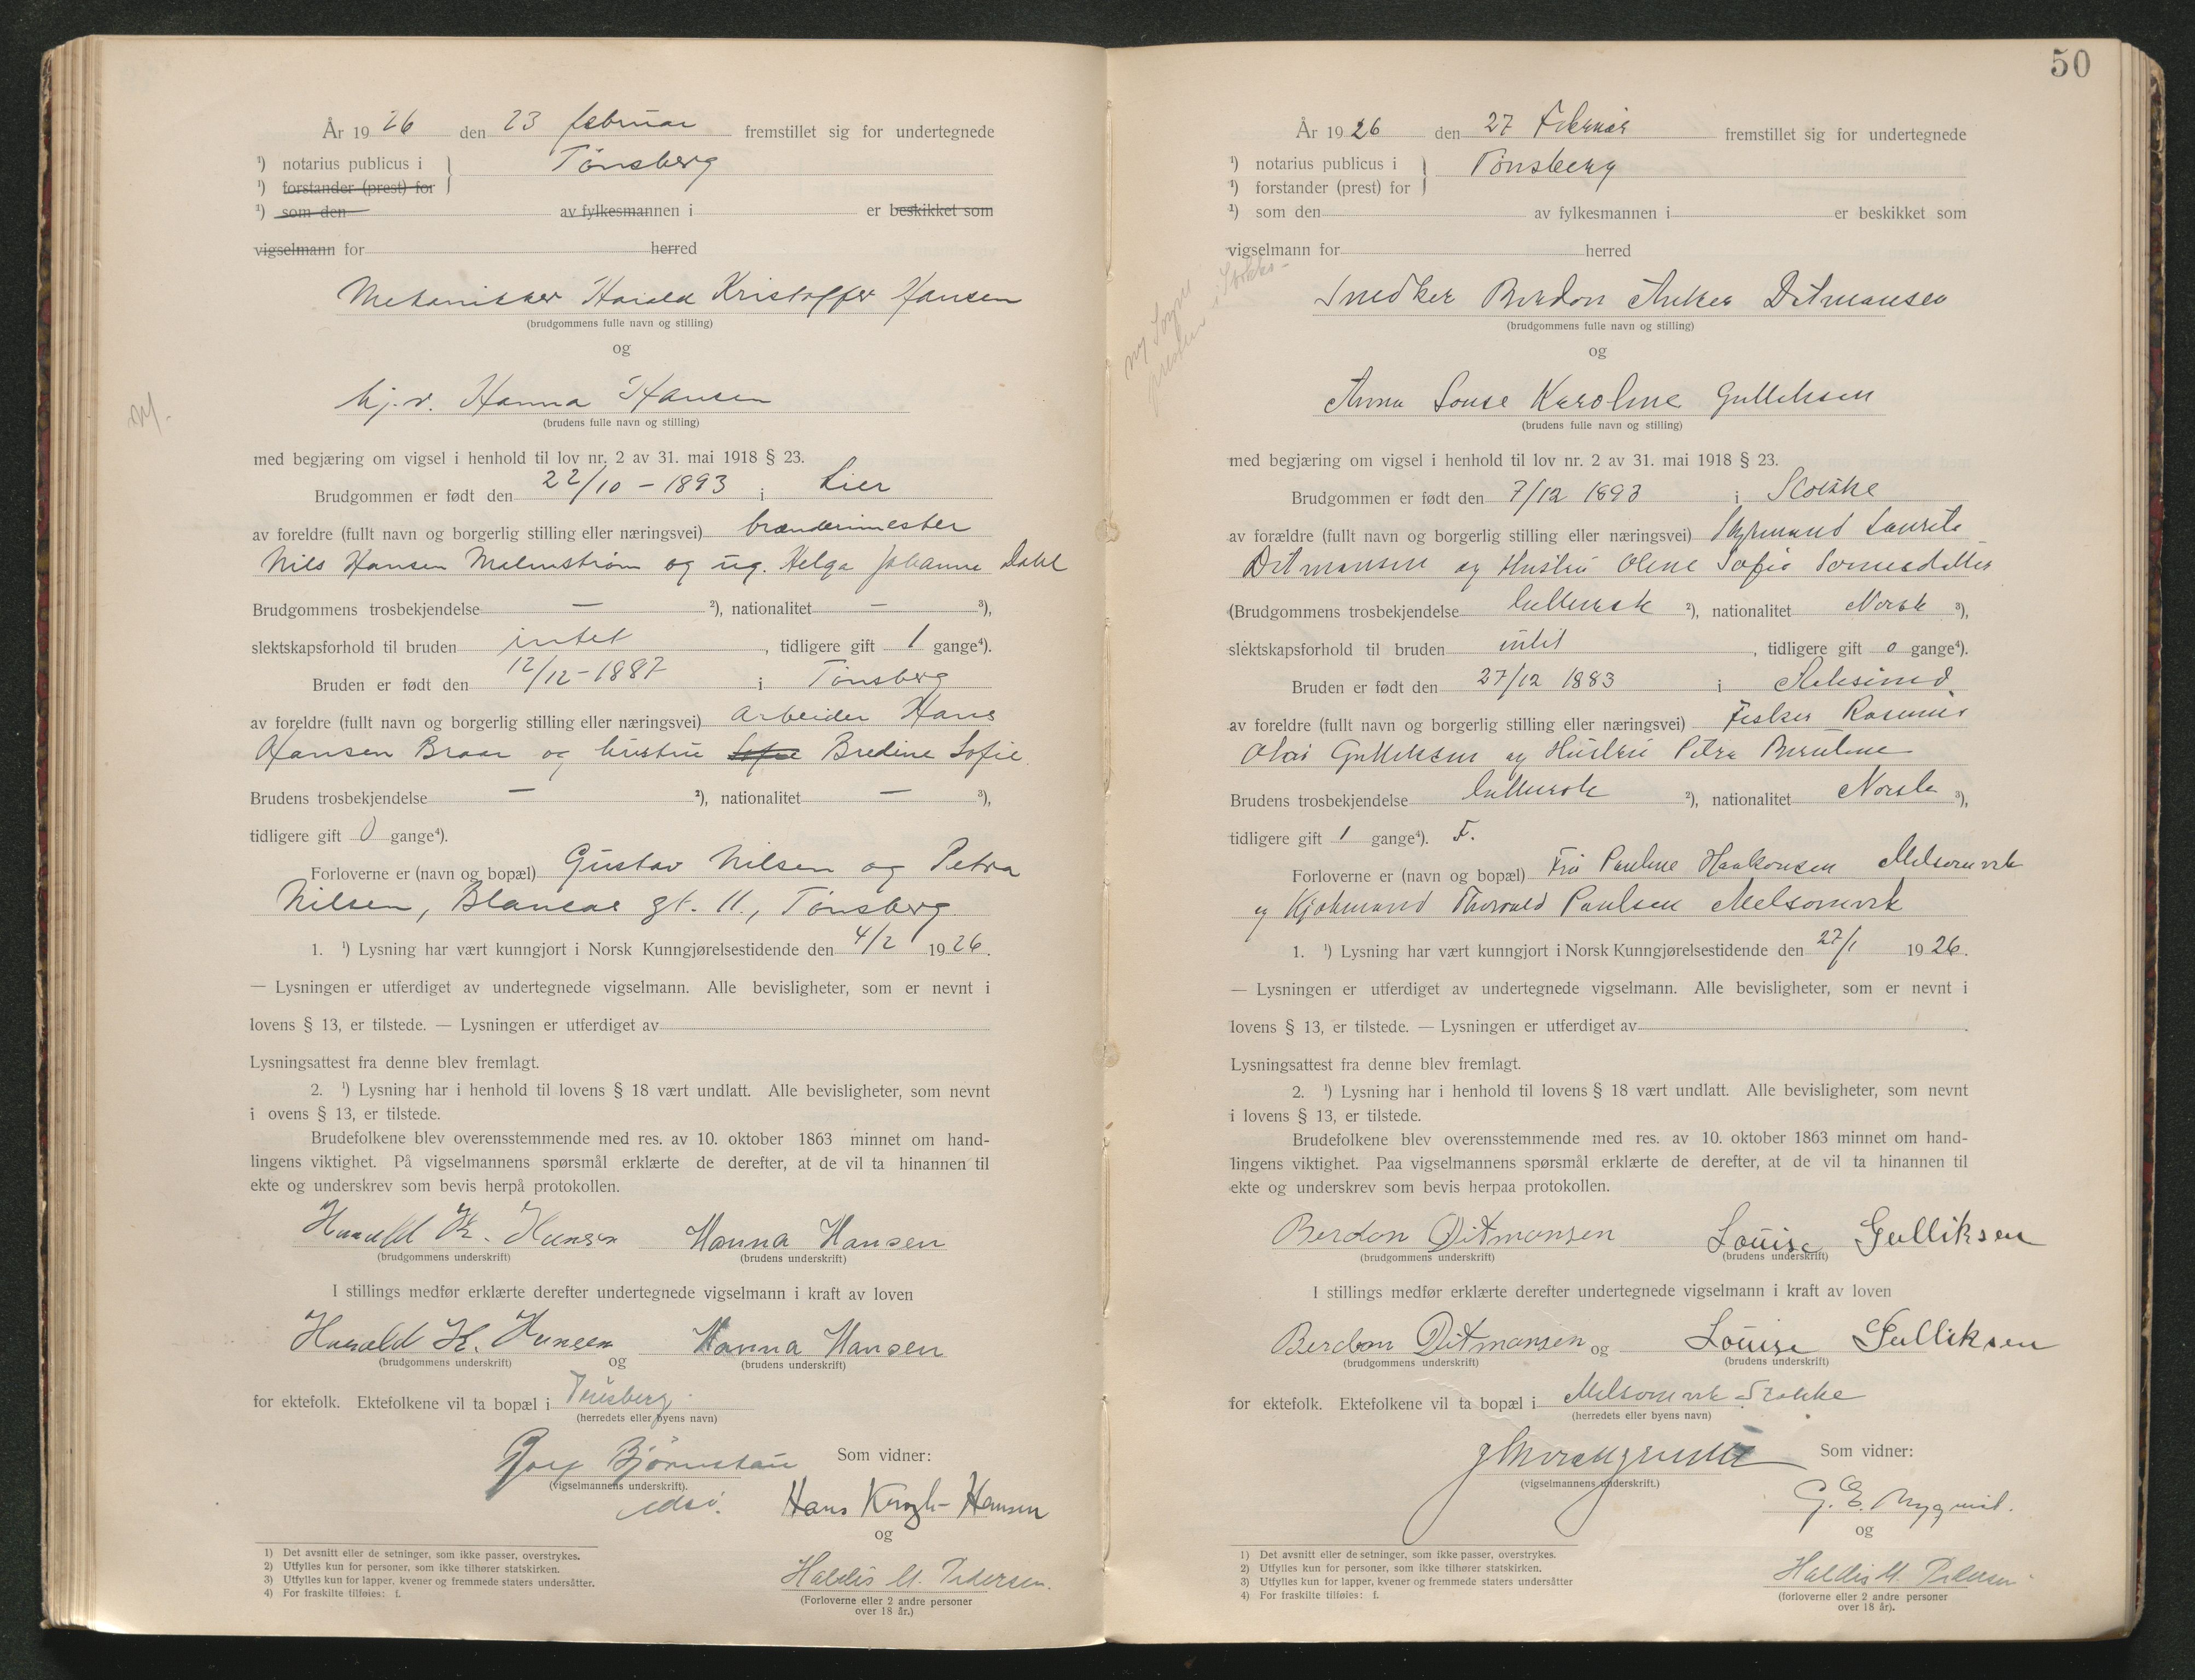 År 1926 den 23 februar fremstillet sig for undertegnede
¹) notarius publicus i } Tönsberg
¹) forstander (prest) for
¹) som den av fylkesmannen i er beskikket som
vigselmann for herred
Mekaniker Harald Kristoffer Hansen
(brudgommens fulle navn og stilling)
og
hj.v. Hanna Hansen
(brudens fulle navn og stilling)
med begjæring om vigsel i henhold til lov nr. 2 av 31. mai 1918 § 23.
Brudgommen er født den 22/10 - 1893 i Lier
av foreldre (fullt navn og borgerlig stilling eller næringsvei) brænderimester
Nils Hansen Malmstrøm og ug. Helga Johanne Dahl
Brudgommens trosbekjendelse — ²), nationalitet — ³),
slektskapsforhold til bruden intet, tidligere gift 1 gange⁴).
Bruden er født den 12/12 - 1887 i Tönsberg
av foreldre (fullt navn og borgerlig stilling eller næringsvei) Arbeider Hans
Hansen Braar og hustru Sofie Bredine Sofie
Brudens trosbekjendelse — ²), nationalitet — ³),
tidligere gift 0 gange⁴).
Forloverne er (navn og bopæl) Gustav Nilsen og Petra
Nilsen, gt. 11, Tönsberg
1. ¹) Lysning har vært kunngjort i Norsk Kunngjørelsestidende den 4/2 1926.
— Lysningen er utferdiget av undertegnede vigselmann. Alle bevisligheter, som er nevnt i
lovens § 13, er tilstede. — Lysningen er utferdiget av
Lysningsattest fra denne blev fremlagt.
2. ¹) Lysning har i henhold til lovens § 18 vært undlatt. Alle bevisligheter, som nevnt
i ovens § 13, er tilstede.
Brudefolkene blev overensstemmende med res. av 10. oktober 1863 minnet om hand-
lingens viktighet. På vigselmannens spørsmål erklærte de derefter, at de vil ta hinannen til
ekte og underskrev som bevis herpå protokollen.
Harald K. Hansen Hanna Hansen
(brudgommens underskrift) (brudens underskrift)
I stillings medfør erklærte derefter undertegnede vigselmann i kraft av loven
Harald K. Hansen og Hanna Hansen
(brudgommens underskrift) (brudens underskrift)
for ektefolk. Ektefolkene vil ta bopæl i Tønsberg.
(herredets eller byens navn)
Bjørnstau Som vidner:
(vigselmannens underskrift).
Hans Krogh-Hansen
og
Haldis M. Pedersen.
(Forloverne eller 2 andre personer
over 18 år.)
1) Det avsnitt eller de setninger, som ikke passer, overstrykes.
2) Utfylles kun for personer, som ikke tilhører statskirken.
3) Utfylles kun for lapper, kvener og fremmede staters undersåtter.
4) For fraskilte tilføies: f.
50
År 1926 den 27 Februar fremstillet sig for undertegnede
¹) notarius publicus i } Tönsberg
¹) forstander (prest) for
¹) som den av fylkesmannen i er beskikket som
vigselmann for herred
Snedker Berdon Anker Ditmansen
(brudgommens fulle navn og stilling)
og
Anna Louise Karoline Gulliksen
(brudens fulle navn og stilling)
med begjæring om vigsel i henhold til lov nr. 2 av 31. mai 1918 § 23.
Brudgommen er født den 7/12 1893 i Stokke
av forældre (fullt navn og borgerlig stilling eller næringsvei) Laurits
Ditmansen og Hustru Oline Sofie
(Brudgommens trosbekjendelse luthersk ²), nationalitet Norsk ³),
slektskapsforhold til bruden intet, tidligere gift 0 gange⁴).
Bruden er født den 27/12 1883 i
av foreldre (fullt navn og borgerlig stilling eller næringsvei) Fisker Rasmus
Olai Gulliksen og Hustru Petra
Brudens trosbekjendelse luthersk ²), nationalitet Norsk ³),
tidligere gift 1 gange⁴). F.
Forloverne er (navn og bopæl) Fru Pauline Haakonsen Melsomvik
og Thorvald Paulsen Melsomvik
1. ¹) Lysning har vært kunngjort i Norsk Kunngjørelsestidende den 27/1 1926.
— Lysningen er utferdiget av undertegnede vigselmann. Alle bevisligheter, som er nevnt i
lovens § 13, er tilstede. — Lysningen er utferdiget av .
Lysningsattest fra denne blev fremlagt.
2. ¹) Lysning har i henhold til lovens § 18 vært undlatt. Alle bevisligheter, som nevnt
i lovens § 13, er tilstede.
Brudefolkene blev overensstemmende med res. av 10. oktober 1863 minnet om hand-
lingens viktighet. Paa vigselmannens spørsmål erklærte de derefter, at de vil ta hinannen til
ekte og underskrev som bevis herpaa protokollen.
Berdon Ditmansen Louise Gulliksen
(brudgommens underskrift) (brudens underskrift)
I stillings medfør erklærte derefter undertegnede vigselmann i kraft av loven
Berdon Ditmansen og Louise Gulliksen
(brudgommens underskrift) (brudens underskrift)
for ektefolk. Ektefolkene vil ta bopæl i Melsomvik Stokke
(herredets eller byens navn)
Som vidner:
(vigselmannens underskrift.)
G. E.
og
Haldis M. Pedersen
(forloverne eller 2 andre personer
over 18 år).
1) Det avsnitt eller de setninger, som ikke passer, overstrykes.
2) Utfylles kun for personer, som ikke tilhører statskirken.
3) Utfylles kun for lapper, kvener og fremmede staters undersåtter
4) For fraskilte tilføies: f.